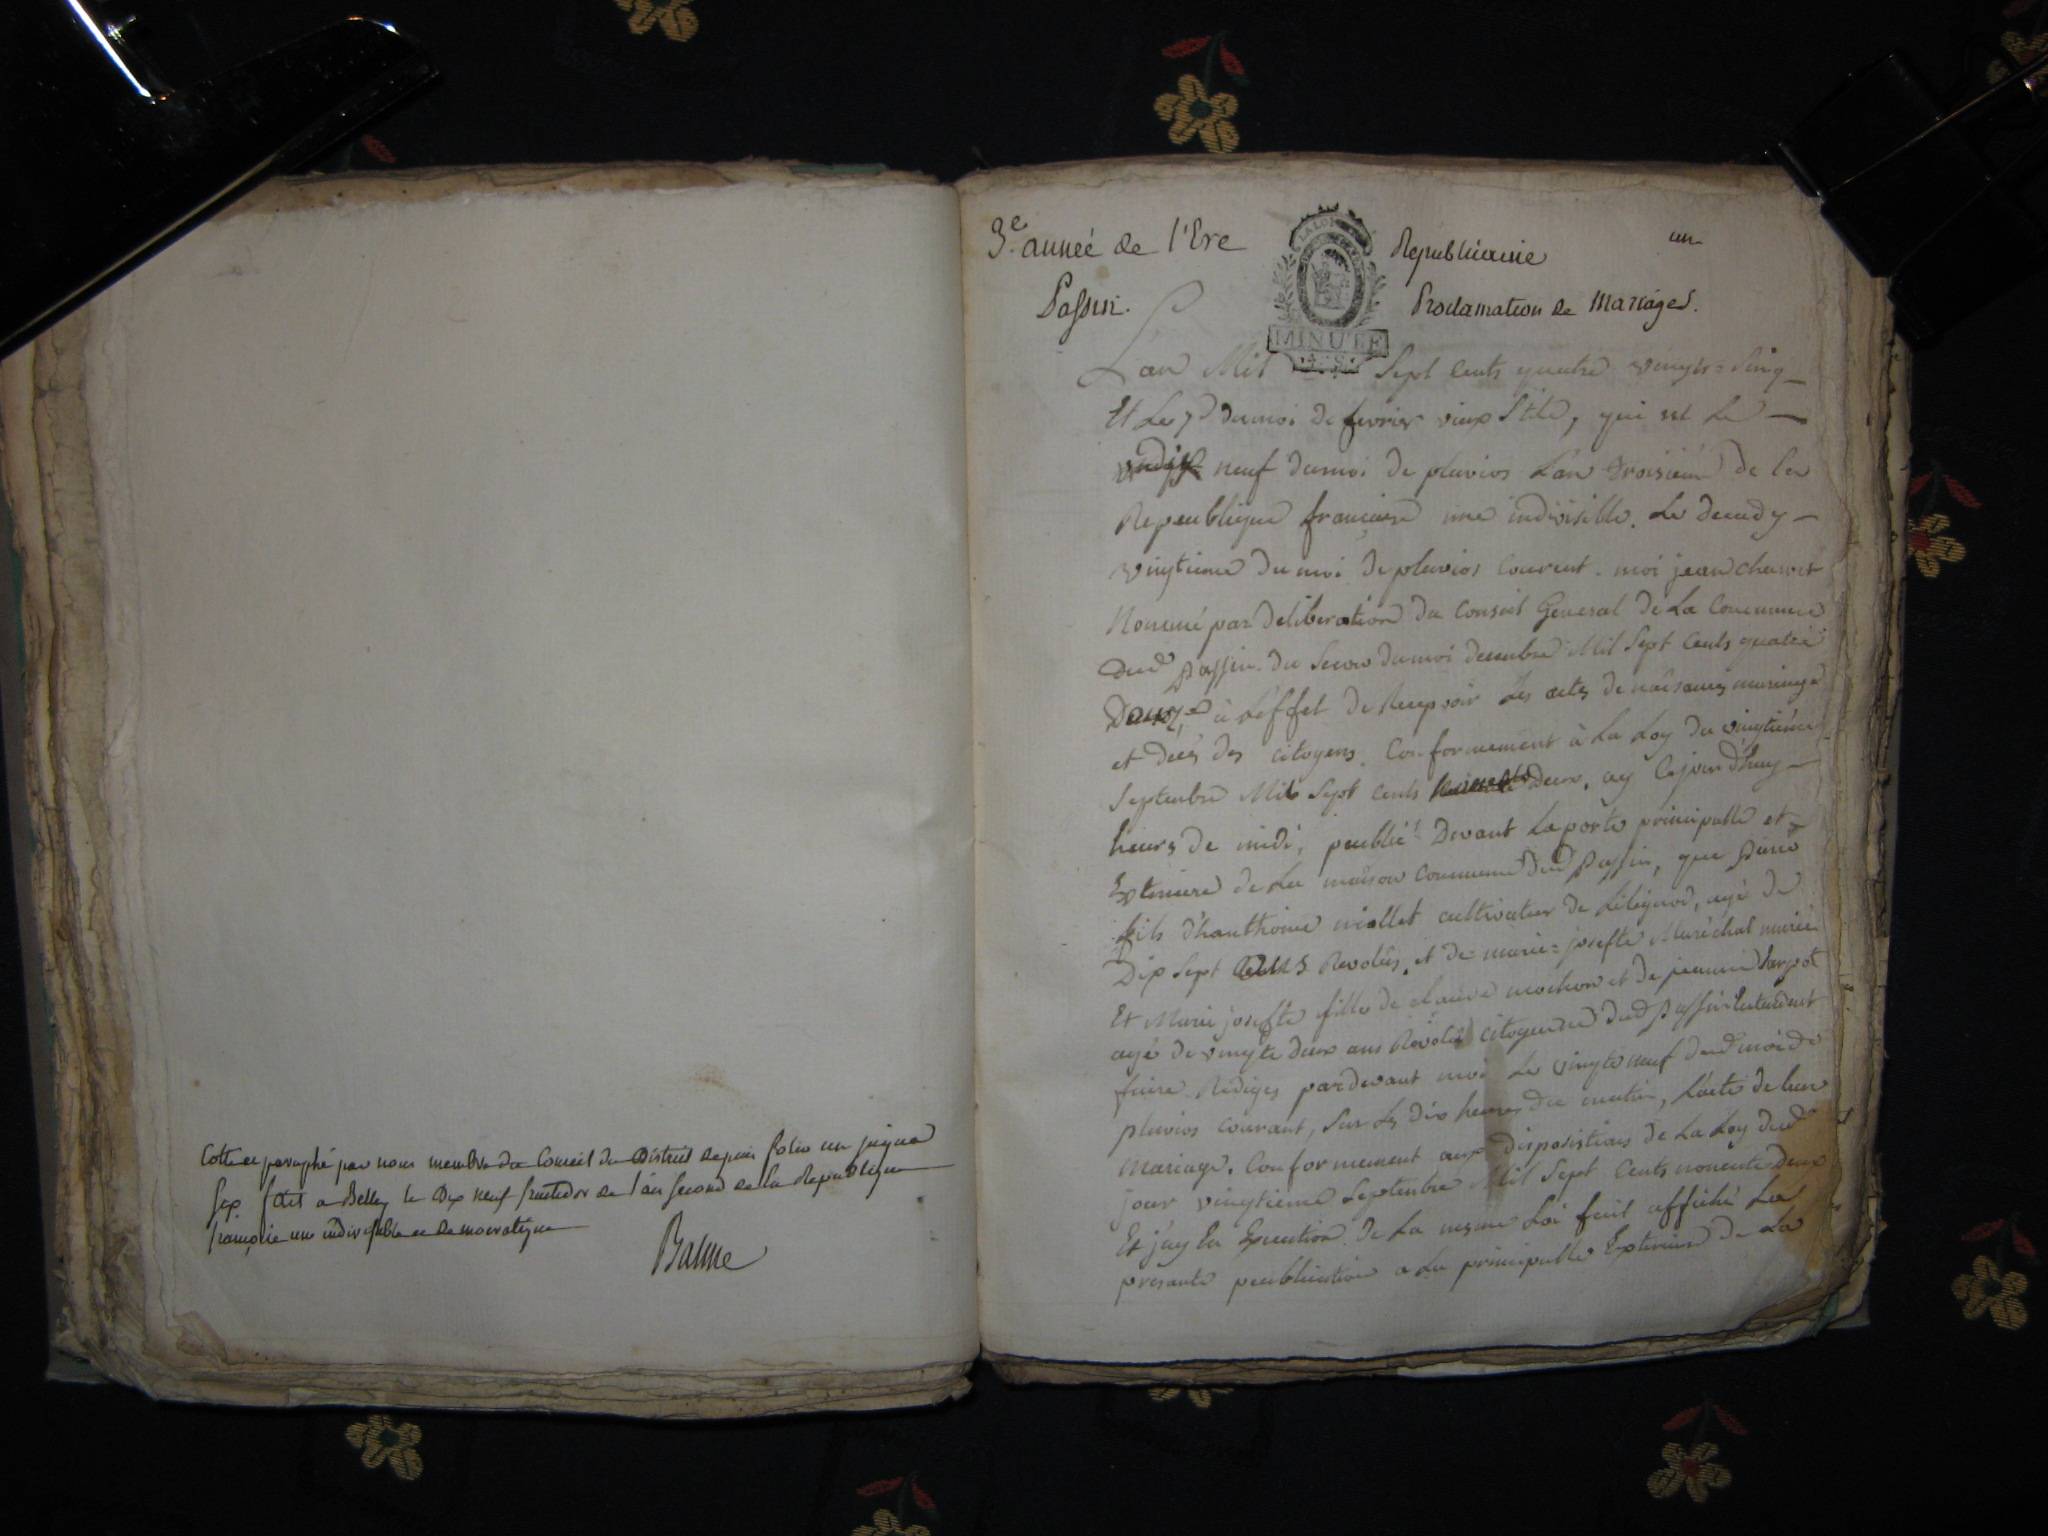 Cotté et paraphé par nous membre du Conseil du District depuis folio un jusqua
six fait a Belley le Dix neuf fructidor de l'an second de la Republique
françoise une indivisible et democratique
Balme
3e. année de l'Ere Republicaine un
Passin. Proclamation de Mariages.
LA LOI
MINUTE
L'an Mil Sept Cents quatre vingts = Sinq
Et Le 7e du moi de fevrier vieux Stile, qui est Le
neuf du moi de pluvios L'an troisieme de la
Republique francaise une indivisible. Le decudy
vingtieme du moi de pluvios Courent. moi jean charvet
Nommé par deliberation du Conseil General de La Commune
Dud Passin. du Secon du moi decembre Mil Sept Cents quatre
à L'effet de Recepvoir Les actes de naisances mariage
et décés des Citoyens. Conformement à La Loy du vingtieme
Septembre Mil Sept Cents deux, ay Cejourd'huy
heurs de midi, peublié Devant La porte principalle et
Exterieure de La maison Commune dud Passin, que
fils d'hanthoine miollet cultivateur de Lilignod, agé de
Dix Sept ans Revolus, et de marie = josefte Maréchal mariés
Et Marie josefte fille de claude mochon et de jeanne
agé de vingte deux ans Revolus citoyenne dud Passin Entendent
faire Rediges pardevant moi Le vingte neuf dud moi de
pluvios Courant, Sur Les dix heures du matin, L'acte de leur
Mariage. Conformement aux dispositions de La Loy dud
jour vingtieme Septembre Mil Sept Cents nonente deux
Et j'ay En Execution de La meme Loi fait affiché La
presante peublication a La principalle Exterieure de La